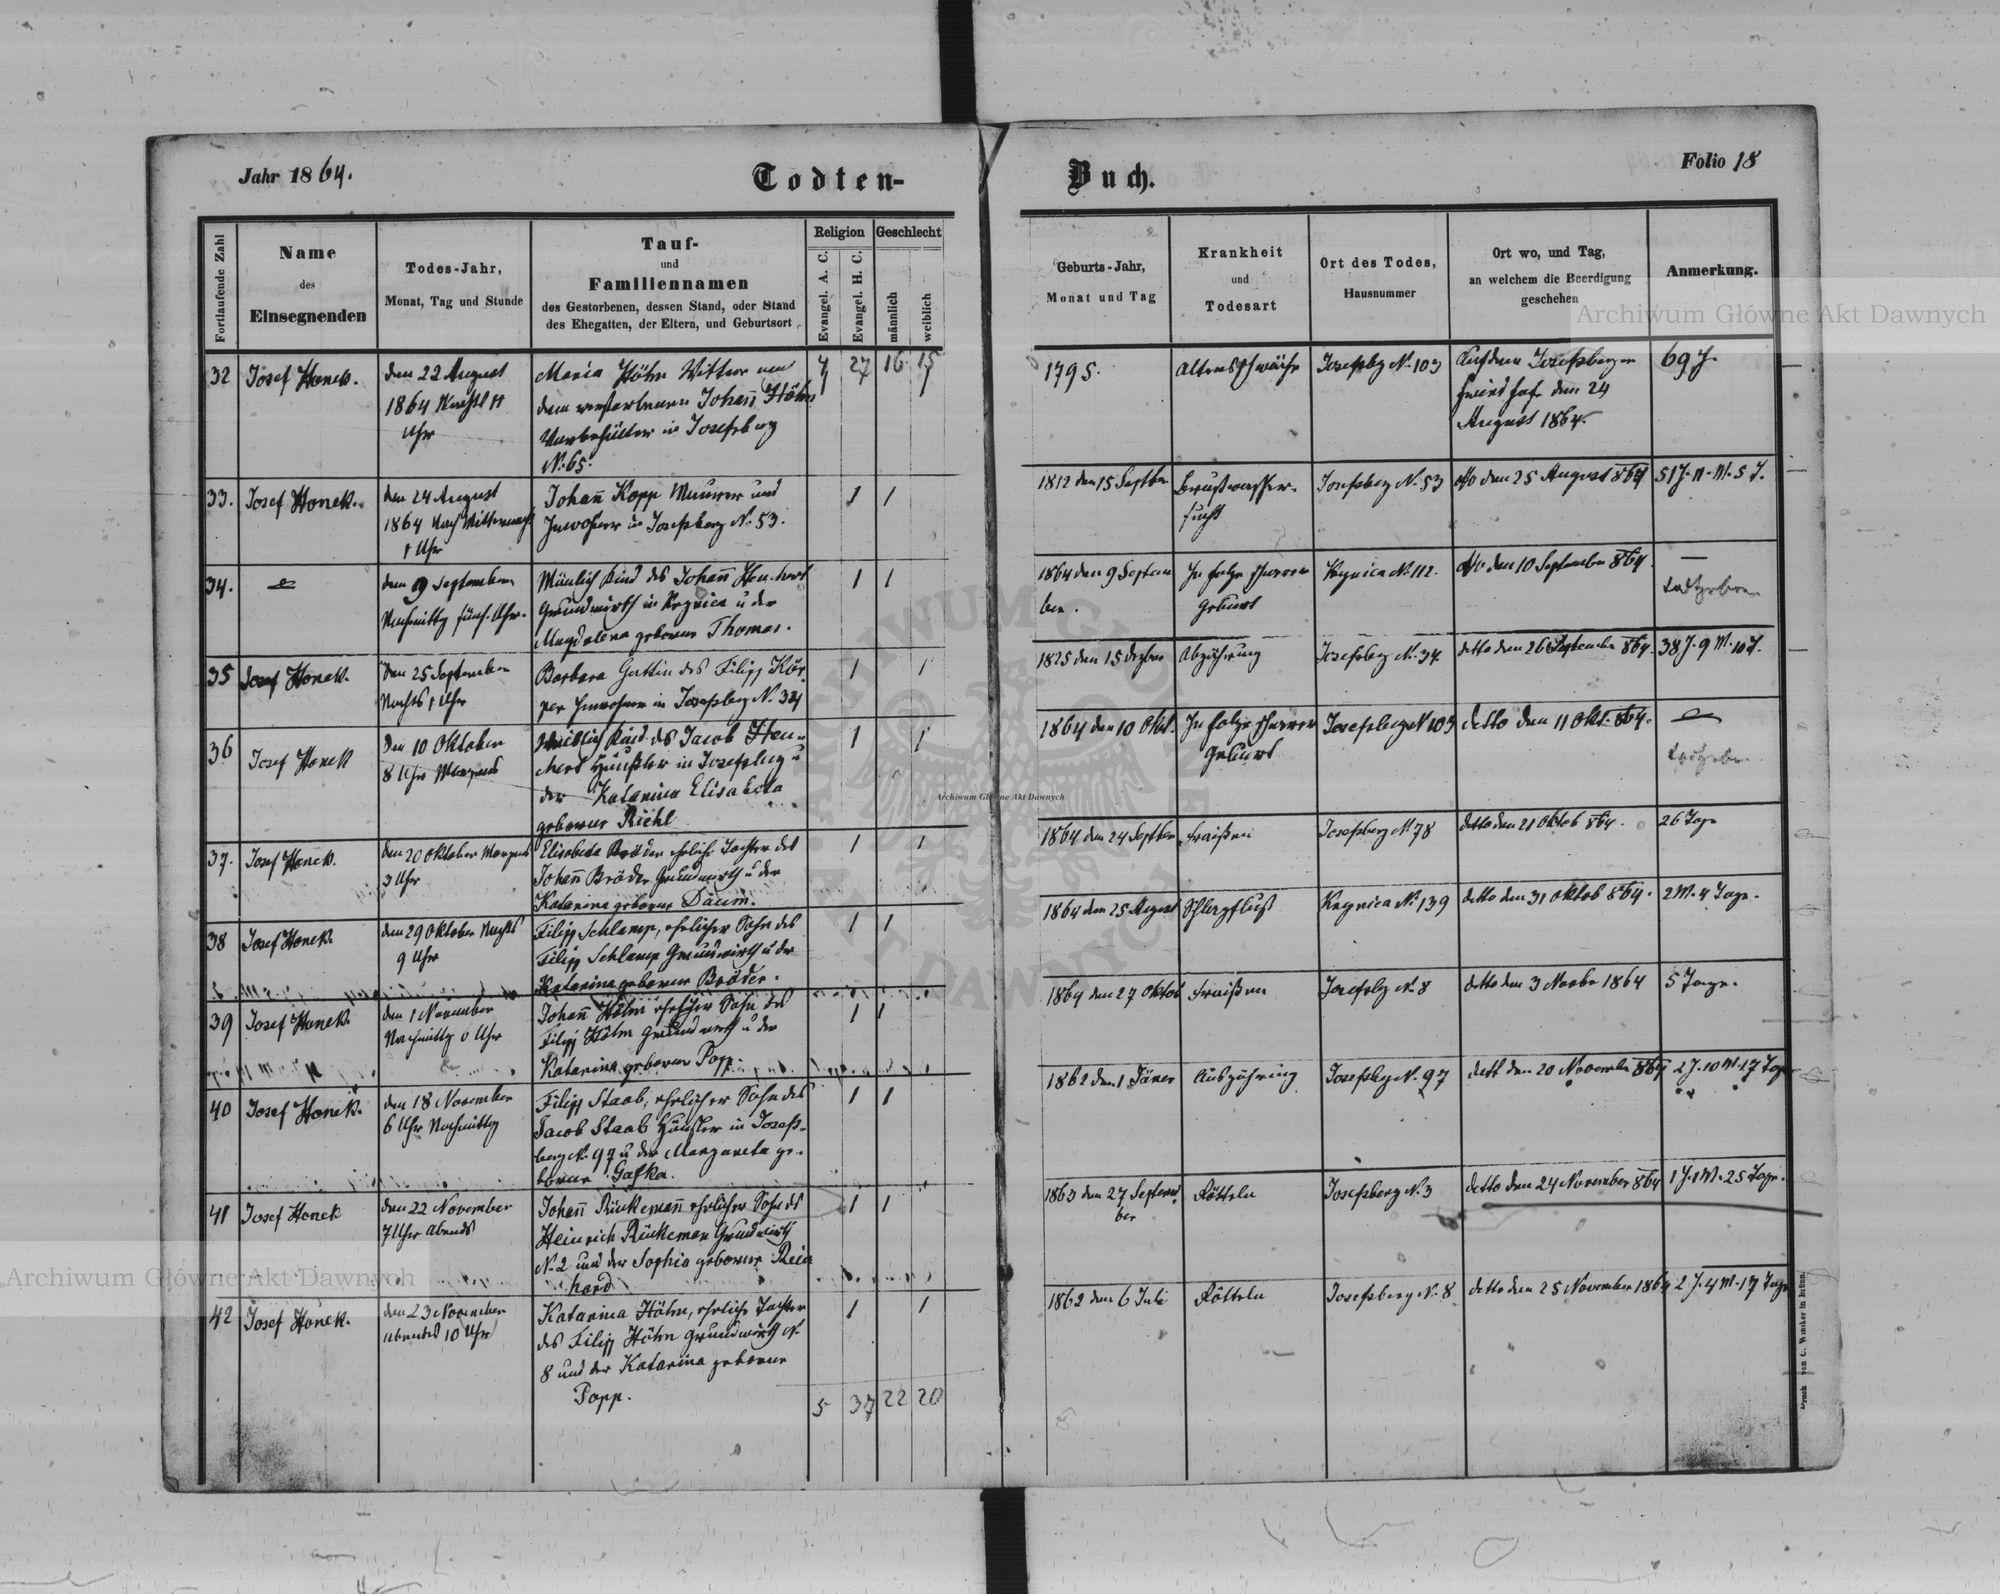 Jahr 1864.
Todten-
Buch.
Folio 18
Fortlaufende Zahl
Name
des
Einsegnenden
Todes-Jahr,
Monat, Tag und Stunde
Tauf-
und
Familiennamen
des Gestorbenen, dessen Stand, oder Stand
des Ehegatten, der Eltern, und Geburtsort
Religion
Evangel. A. C.
Evangel. H. C.
Geschlecht
männlich
weiblich
Geburts-Jahr,
Monat und Tag
Krankheit
und
Todesart
Ort des Todes,
Hausnummer
Ort wo, und Tag,
an welchem die Beerdigung
geschehen
Anmerkung.
32
Josef Honek.
den 22 August
1864 Nachts 11
Uhr
Maria Höhn Wittwe nach
dem verstorbenen Johann Höhn
in Josefsberg
N. 65.
4 27 16 15
1 1
1795.
Altersschwäche
Josefsbg N. 103
Auf dem Josefsberger
Friedhofe den 24
August 1864.
69 J.
33.
Josef Honek.
den 24 August
1864 Nach Mitternacht
1 Uhr
Johann Kopp Maurer und
Inwohner in Josefsberg N. 53.
1 1
1812 den 15 Septber
Brustwasser-
sucht
Josefsberg N. 53
dto den 25 August 864
51 J. 11 M. 5 T.
34.
den 9 September
Nachmittg fünf Uhr.
Mänlich Kind des Johann Heuchert
Grundwirth in Kregnica u der
Magdalena geborne Thomas.
1 1
1864 den 9 Septem
ber.
In folge schwerer
Geburt
Krynica N. 112.
dto den 10 September 864
—
todtgeboren
35
Josef Honek.
den 25 September
Nachts 1 Uhr
Barbara Gattin des Filipp Kör-
per Inwohner in Josefsberg N. 34
1 1
1825 den 15 Dezber
Abzehrung
Josefsberg N. 34.
detto den 26 September 864.
38 J. 9 M. 10 T.
36
Josef Honek
Den 10 Oktober
8 Uhr Morgens
Weiblich Kind des Jacob Heu-
chert Häußler in Josefsberg u
der Katarina Elisabeta
geborne Riehl
1 1
1864 den 10 Okt.
In folge schwerer
Geburt
Josefsberg N 103
detto den 11 Okt. 864.
todtgebor
37.
Josef Honek.
den 20 Oktober Morgends
3 Uhr
Elisabeta Bröder eheliche Tochter des
Johann Bröder Grundwirth u der
Katarina geborne Daum.
1 1
1864 den 24 Septber
Fraißen
Josefsberg N. 78
detto den 21 Oktob 864.
26 Tage
38
Josef Honek.
den 29 Oktober Nachts
9 Uhr
Filipp Schlamp, ehelicher Sohn des
Filipp Schlamp Grundwirth u der
Katarina geborne Bröder.
1 1
1864 den 25 August
Schlagfluß
Kregnica N. 139
detto den 31 Oktob 864.
2 M. 4 Tage.
39
Josef Honek.
den 1 November
Nachmittg 6 Uhr
Johann Höhn ehelicher Sohn des
Filipp Höhn Grundwirth u der
Katarina geborne Popp.
1 1
1864 den 27 Oktob
Fraißen
Josefsbg N. 8
detto den 3 Novbr 1864
5 Tage.
40
Josef Honek.
den 18 November
6 Uhr Nachmittg
Filipp Staab, ehelicher Sohn des
Jacob Staab Häußler in Josefs-
berg N. 97 u der Margareta ge-
borne Gafka.
1 1
1862 den 1 Jäner
Auszehrung
Josefsbg N. 97
dett den 20 November 864
2 J. 10 M. 17 Tage
41
Josef Honek
den 22 November
7 Uhr Abends
Johann Rückemann ehelicher Sohn des
Heinrich Rückeman Grundwirth
N. 2 und der Sophia geborne Rein
hard
1 1
1863 den 27 Septem
ber
Rötteln
Josefsberg N. 3
detto den 24 November 864
1 J. 1 M. 25 Tage.
42
Josef Honek.
den 23 November
abends 10 Uhr
Katarina Höhn, eheliche Tochter
des Filipp Höhn Grundwirth N.
8 und der Katarina geborne
Popp.
1 1
1862 den 6 Juli
Rötteln
Josefsberg N. 8
detto den 25 November 1864
2 J. 4 M. 17 Tage
5 37 22 20
Druck von C. Winiker in Brünn.
Archiwum Główne Akt Dawnych
Archiwum Główne Akt Dawnych
Archiwum Główne Akt Dawnych
ARCHIWUM GŁÓWNE AKT DAWNYCH